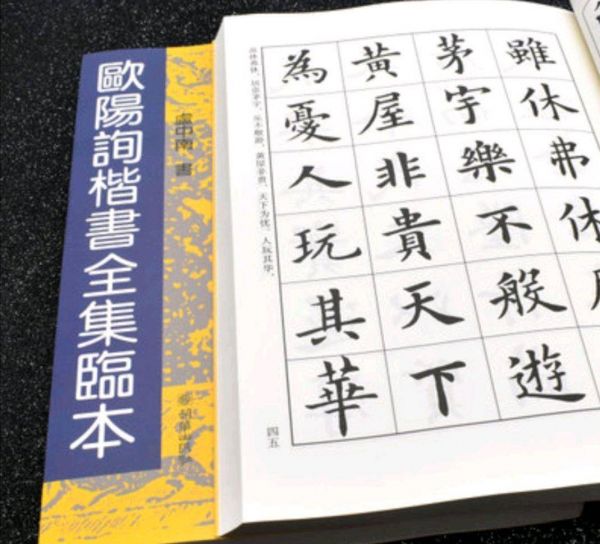 歐陽詢楷書全集臨本
盧中南 書
朝華出版
雖休弗休
茅宇樂不般遊
黃屋非貴天下
為憂人玩其華
虽休弗休，居崇茅宇，乐不般游，黄屋非贵，天下为忧，人玩其华，
四五